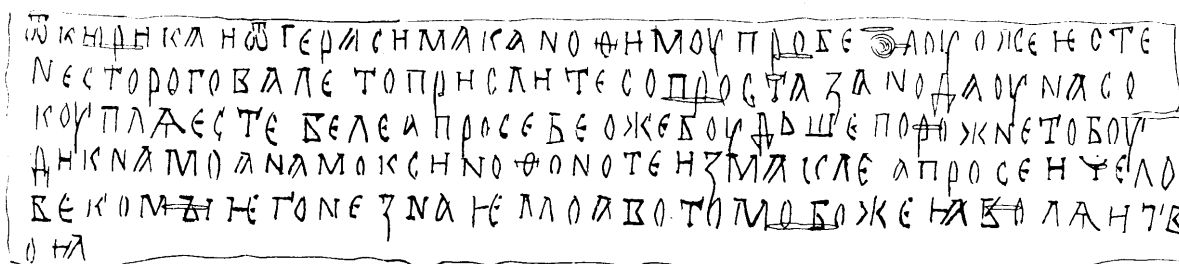 ѿкюрикаиѿгерасимаканофимоупробелоуожеѥсте
несторогвалетоприслитесопростазанодаоунасо
коуплѧестебелеапросебеожебоудьшепорожнетобоу
дикнамоанамоксинофонотеизмаклеапросеичело
векомъіѥгонезнаѥмоавотомобожеꙗволѧитв
оꙗ